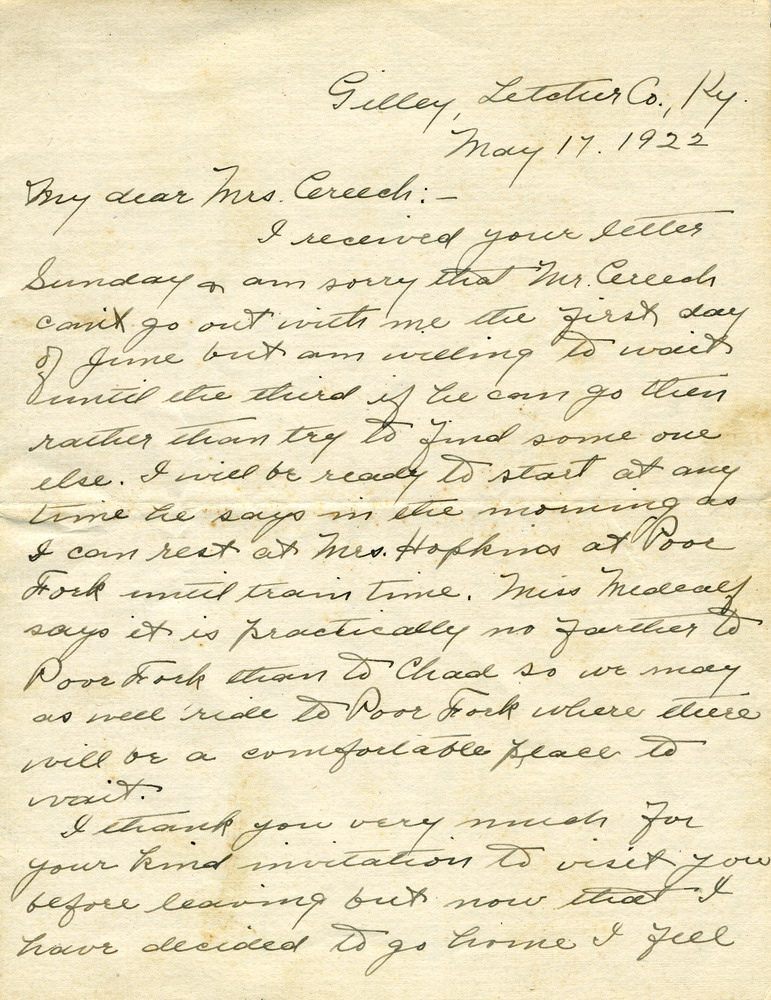 Gilley, Letcher Co., Ky.
May 17. 1922
My dear Mrs. Creech:-
I received your letter
Sunday & am sorry that Mr. Creech
can't go out with me the first day
of June but am willing to wait
until the third if he can go then
rather than try to find some one
else. I will be ready to start at any
time he says in the morning as
I can rest at Mrs. Hopkins at Poor
Fork until train time. Miss Medcalf
says it is practically no farther to
Poor Fork than to Chad so we may
as well ride to Poor Fork where there
will be a comfortable place to
wait.
I thank you very much for
your kind invitation to visit you
before leaving but now that I
have decided to go home I feel